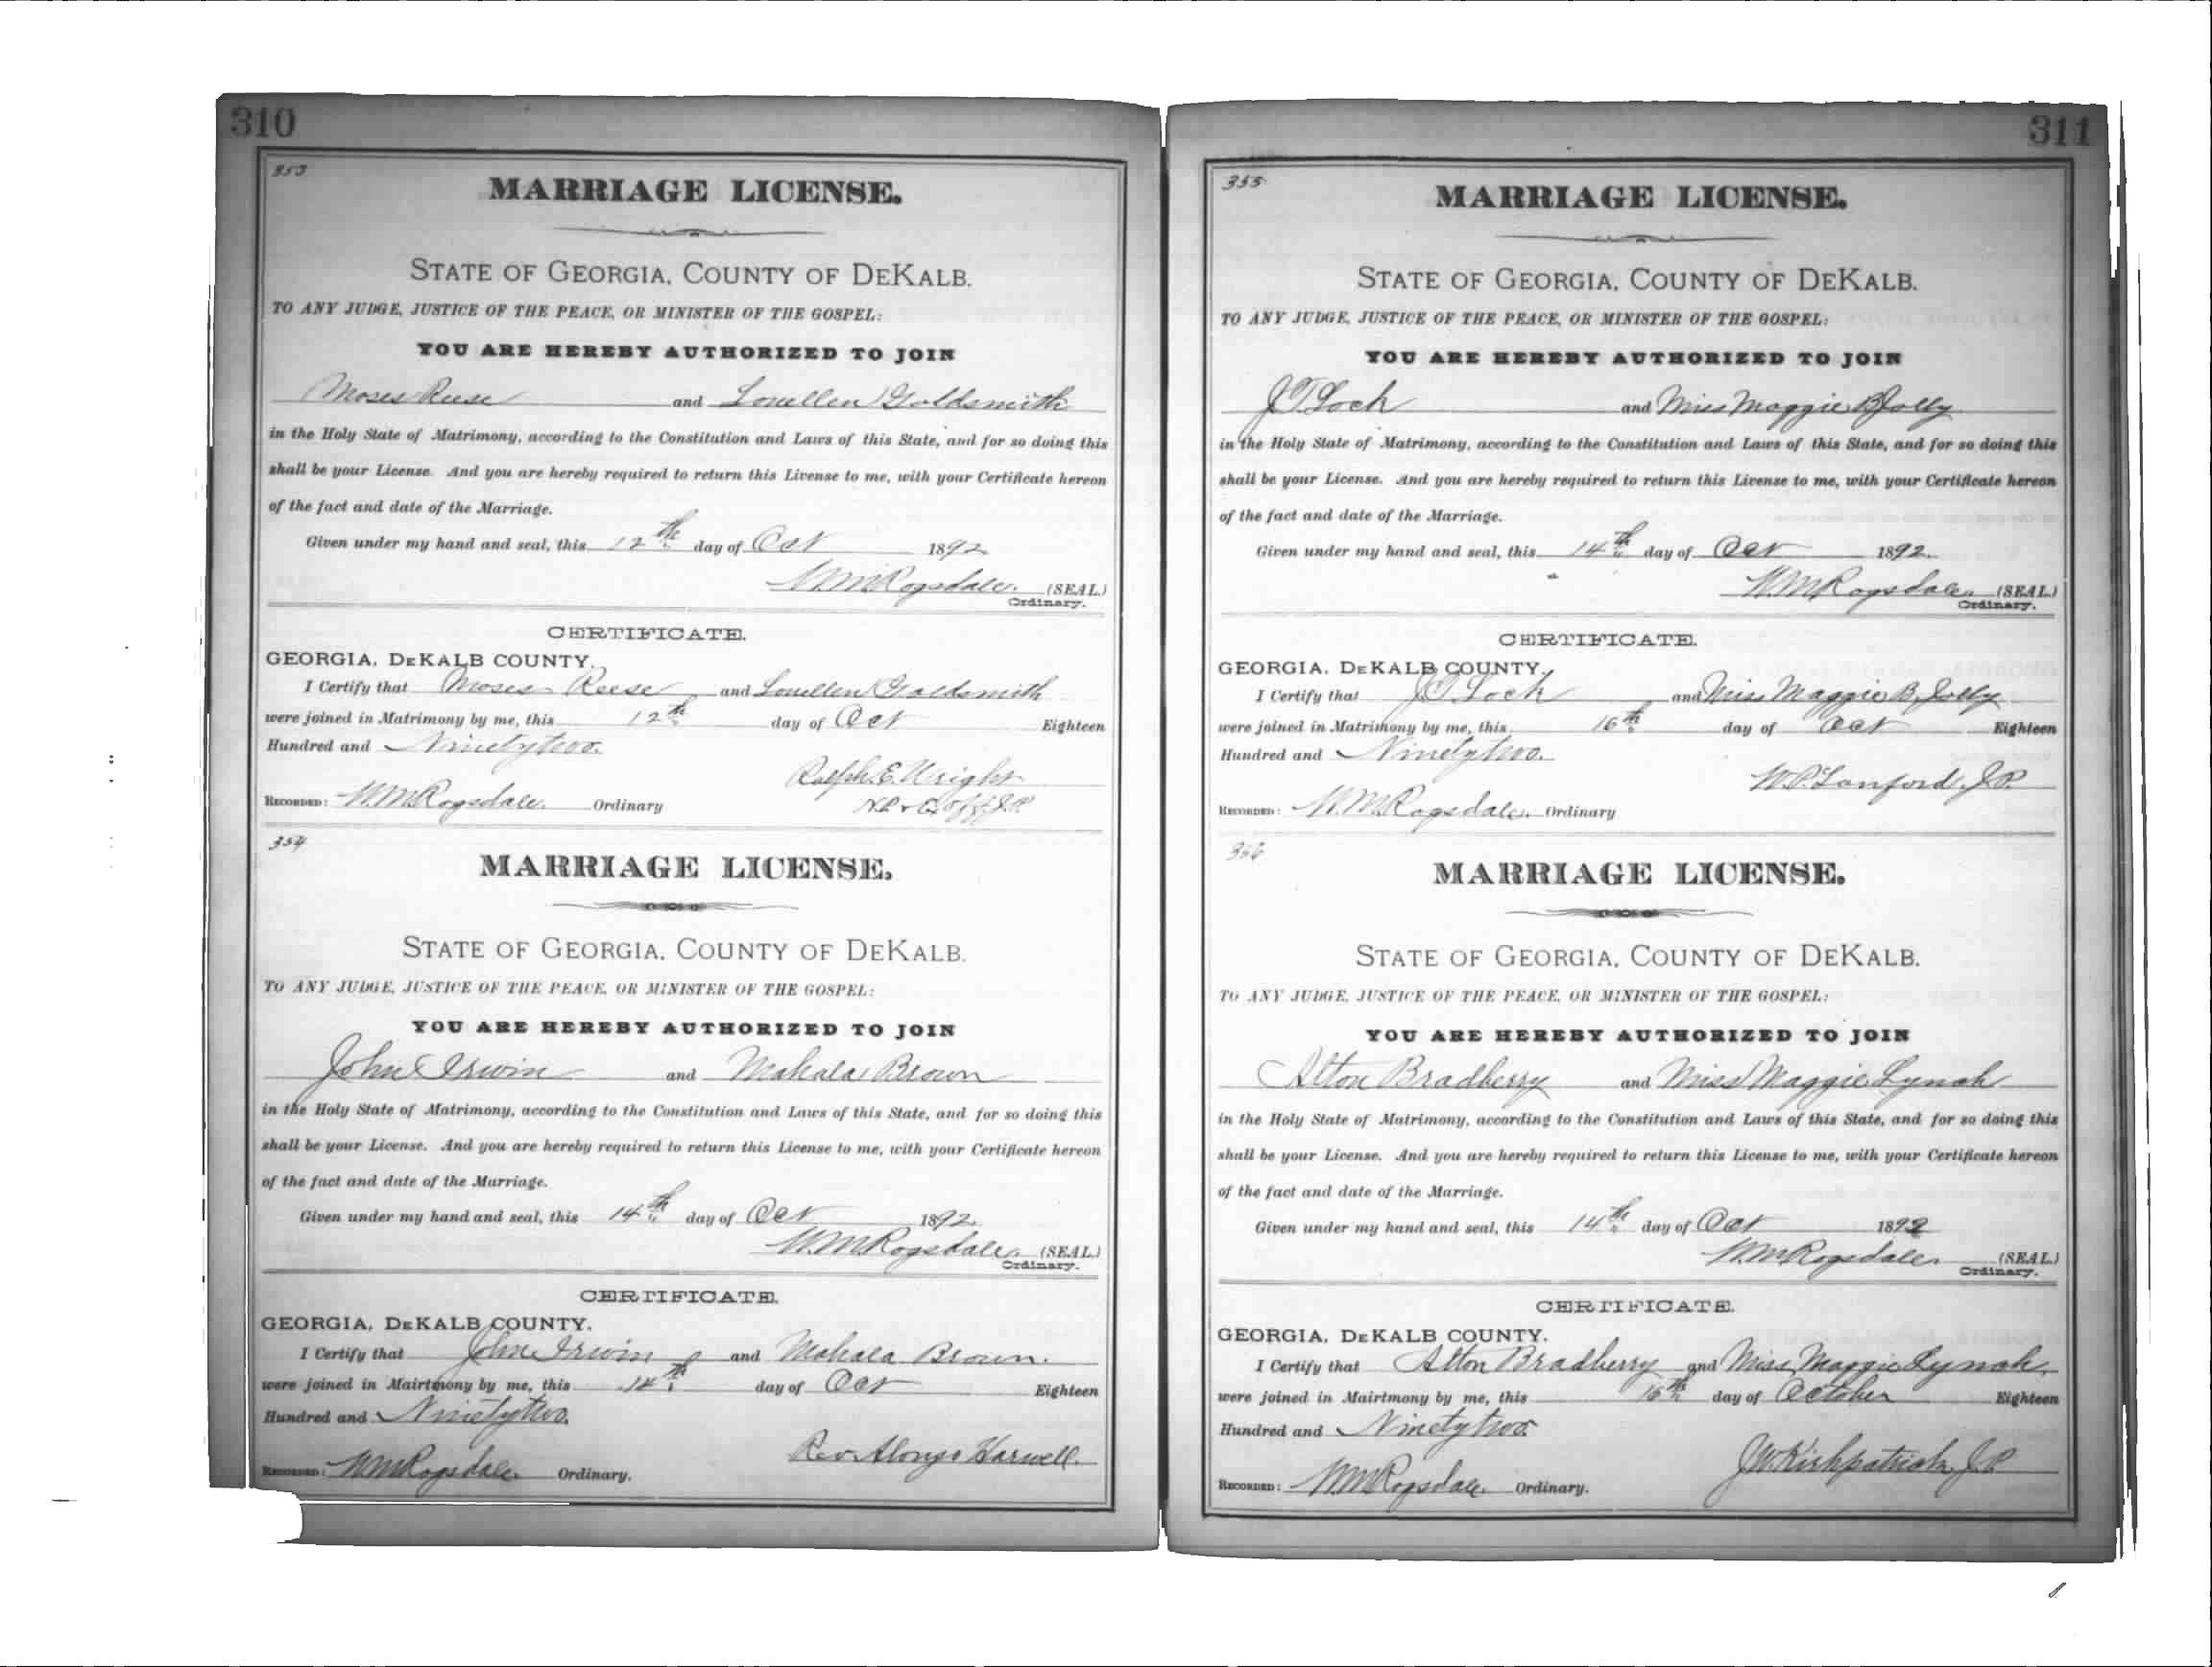 310
353
MARRIAGE LICENSE.
STATE OF GEORGIA, COUNTY OF DEKALB.
TO ANY JUDGE, JUSTICE OF THE PEACE, OR MINISTER OF THE GOSPEL:
YOU ARE HEREBY AUTHORIZED TO JOIN
Moses Reese and Louellen Goldsmith
in the Holy State of Matrimony, according to the Constitution and Laws of this State, and for so doing this
shall be your License. And you are hereby required to return this License to me, with your Certificate hereon
of the fact and date of the Marriage.
Given under my hand and seal, this 12th day of Oct 1892
W. M. Ragsdale. (SEAL.)
Ordinary.
CERTIFICATE.
GEORGIA, DEKALB COUNTY.
I Certify that Moses Reese and Louellen Goldsmith
were joined in Matrimony by me, this 12th day of Oct Eighteen
Hundred and Ninety two.
Ralph. E. Wright
RECORDED: W. M. Ragsdale. Ordinary N.P. & Ex off J.P.
354
MARRIAGE LICENSE.
STATE OF GEORGIA, COUNTY OF DEKALB.
TO ANY JUDGE, JUSTICE OF THE PEACE, OR MINISTER OF THE GOSPEL:
YOU ARE HEREBY AUTHORIZED TO JOIN
John Irwin and Mahala Brown
in the Holy State of Matrimony, according to the Constitution and Laws of this State, and for so doing this
shall be your License. And you are hereby required to return this License to me, with your Certificate hereon
of the fact and date of the Marriage.
Given under my hand and seal, this 14th day of Oct 1892.
W. M. Ragsdale. (SEAL.)
Ordinary.
CERTIFICATE.
GEORGIA, DEKALB COUNTY.
I Certify that John Irwin and Mahala Brown.
were joined in Mairtmony by me, this 14th day of Oct Eighteen
Hundred and Ninety two.
Rev. Alonzo Harwell.
RECORDED: W. M. Ragsdale. Ordinary.
311
355
MARRIAGE LICENSE.
STATE OF GEORGIA, COUNTY OF DEKALB.
TO ANY JUDGE, JUSTICE OF THE PEACE, OR MINISTER OF THE GOSPEL:
YOU ARE HEREBY AUTHORIZED TO JOIN
J. T. Loch and Miss Maggie B. Jolly
in the Holy State of Matrimony, according to the Constitution and Laws of this State, and for so doing this
shall be your License. And you are hereby required to return this License to me, with your Certificate hereon
of the fact and date of the Marriage.
Given under my hand and seal, this 14th day of Oct 1892.
W. M. Ragsdale. (SEAL.)
Ordinary.
CERTIFICATE.
GEORGIA, DEKALB COUNTY.
I Certify that J. T. Loch and Miss Maggie B. Jolly
were joined in Matrimony by me, this 16th day of Oct Eighteen
Hundred and Ninety two.
W. P. Lanford. J.P.
RECORDED: W. M. Ragsdale. Ordinary
356
MARRIAGE LICENSE.
STATE OF GEORGIA, COUNTY OF DEKALB.
TO ANY JUDGE, JUSTICE OF THE PEACE, OR MINISTER OF THE GOSPEL:
YOU ARE HEREBY AUTHORIZED TO JOIN
Alton Bradberry and Miss Maggie Lynch
in the Holy State of Matrimony, according to the Constitution and Laws of this State, and for so doing this
shall be your License. And you are hereby required to return this License to me, with your Certificate hereon
of the fact and date of the Marriage.
Given under my hand and seal, this 14th day of Oct 1892
W. M. Ragsdale. (SEAL.)
Ordinary.
CERTIFICATE.
GEORGIA, DEKALB COUNTY.
I Certify that Alton Bradberry and Miss Maggie Lynch.
were joined in Mairtmony by me, this 16th day of October Eighteen
Hundred and Ninety two
J. W. Kirkpatrick J.P.
RECORDED: W. M. Ragsdale. Ordinary.